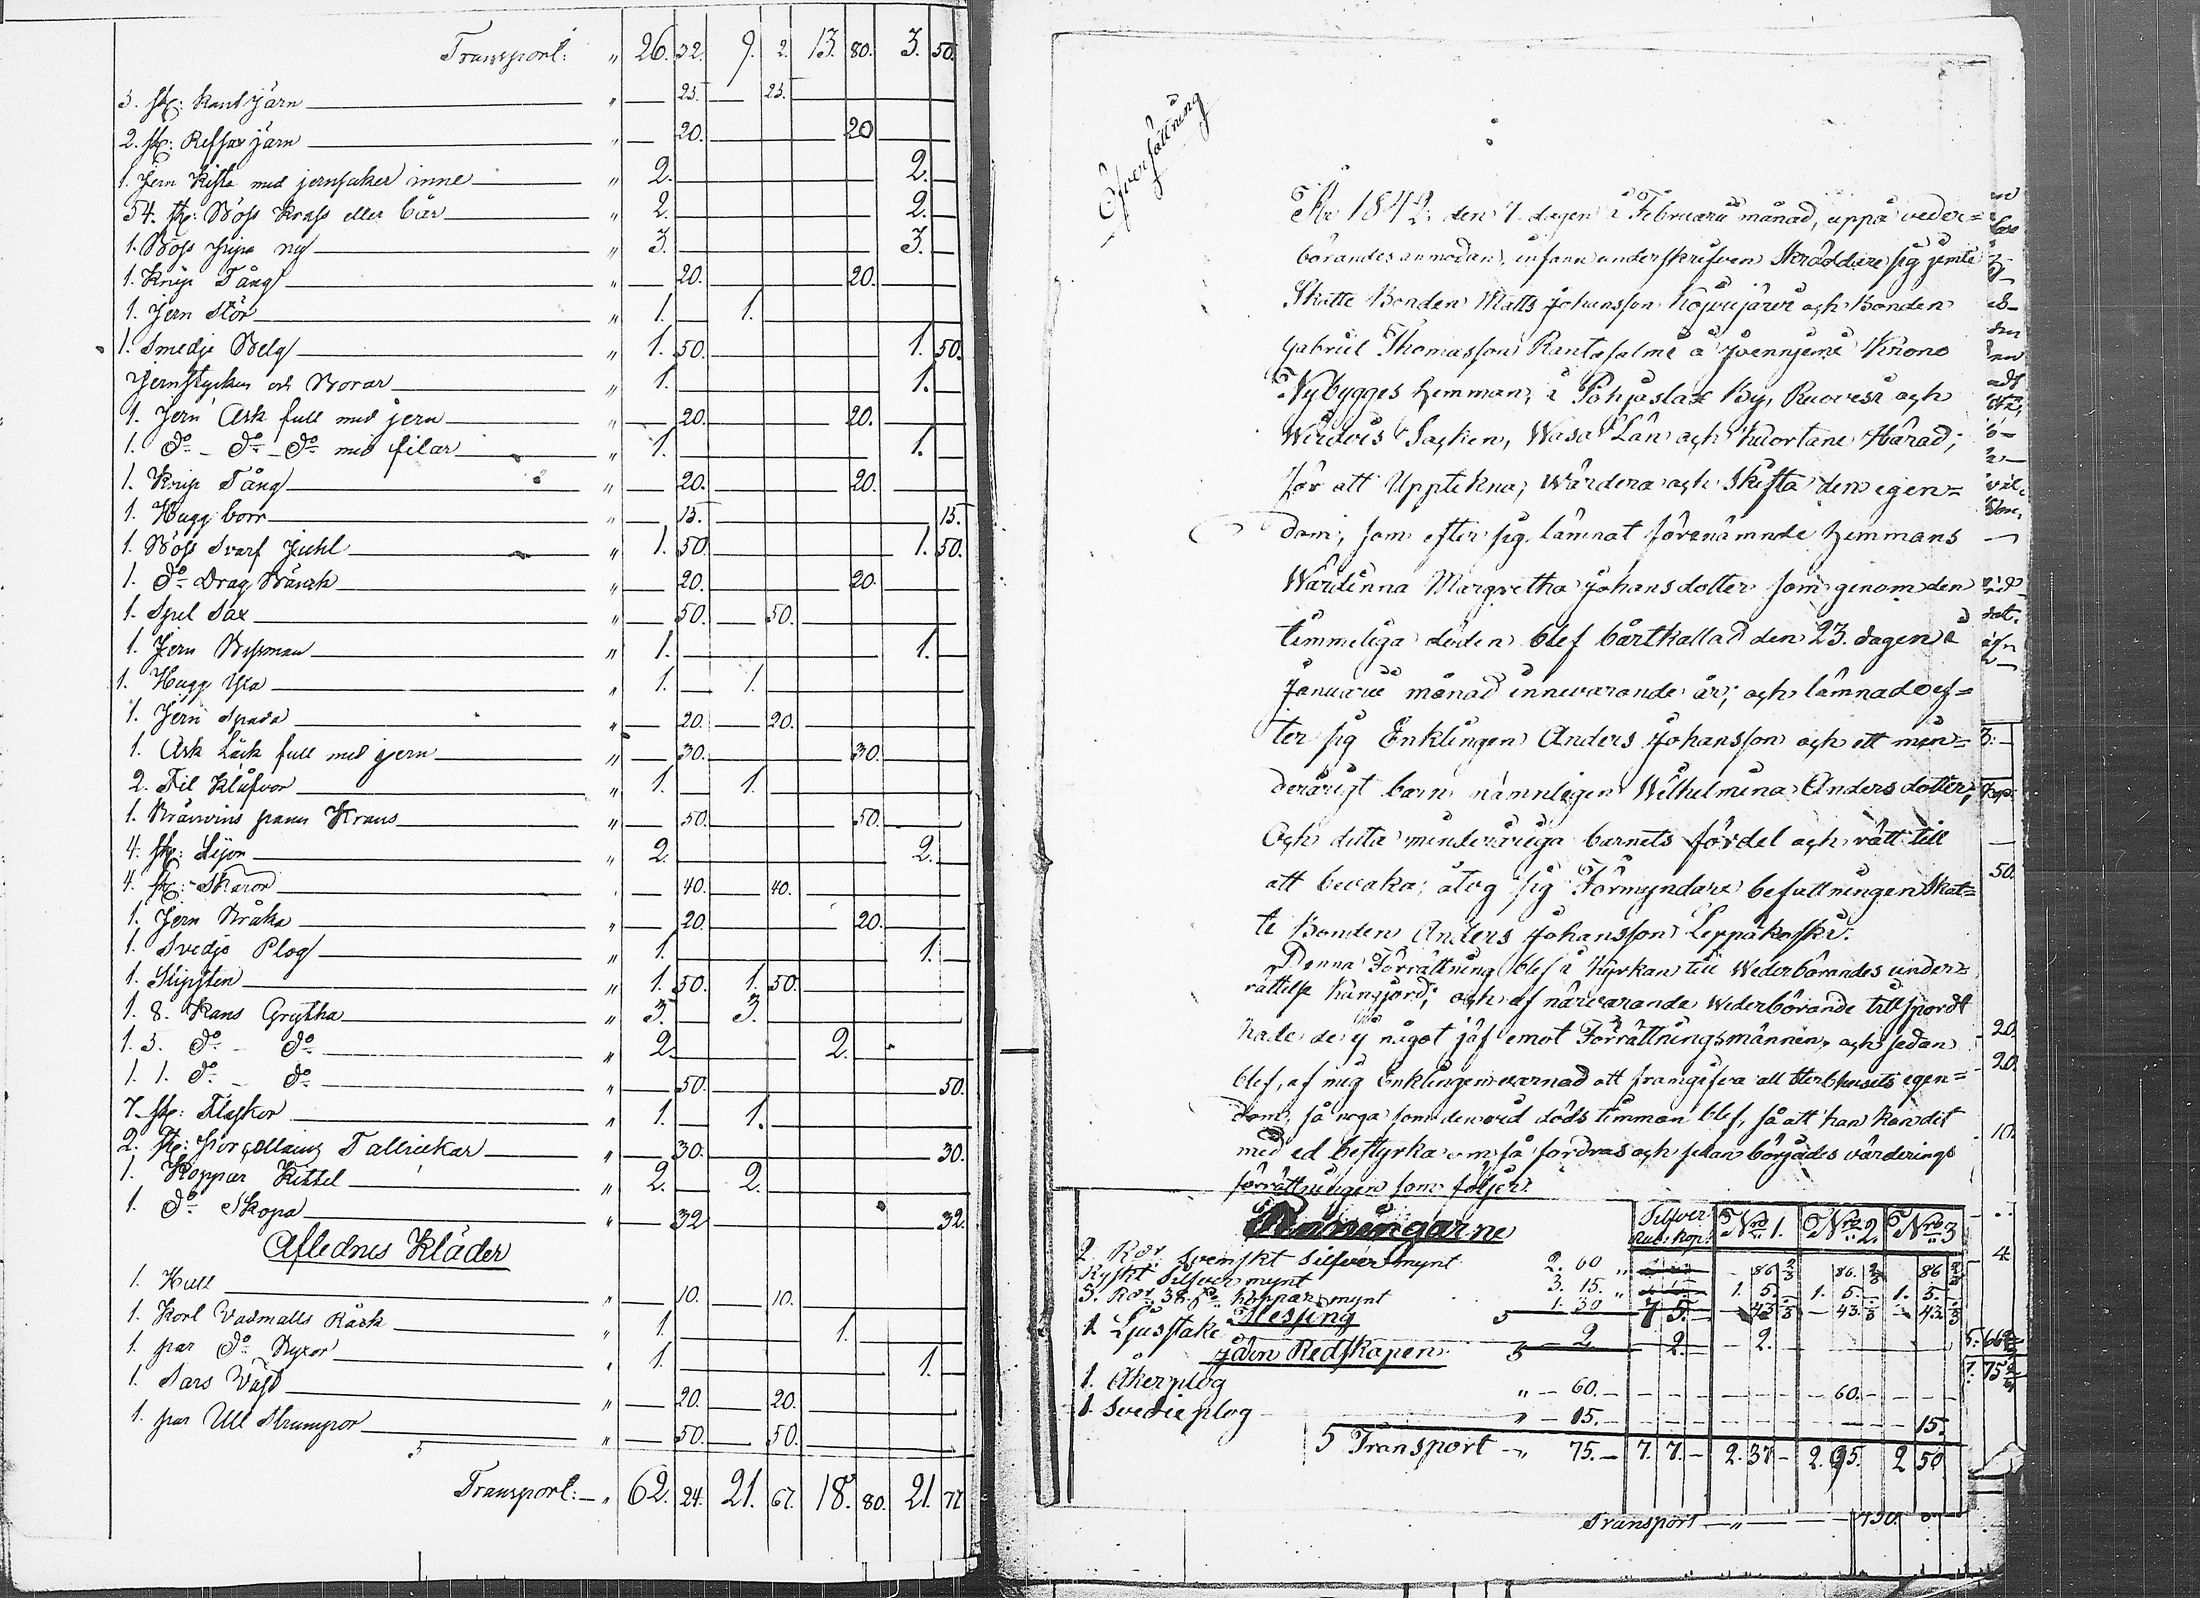 Transport: " 26. 32. 9. 2. 13. 80. 3. 50.
3. st: kant järn " 25. 25.
2. st: järn " 20. 20
1. Jern Kista med jernsaker inne " 2. 2.
54. st: Böss Krass eller bår " 2. 2.
1. Böss pipa ny " 3. 3.
1. Knip Tång " 20. 20.
1. Jern Stör " 1. 1.
1. Smedje Belg " 1. 50. 1. 50.
Jernstycken och Borar " 1. 1.
1. Jern Ask full med jern " 20. 20.
1. Do - Do - Do med filar " 1. 1.
1. Knip Tång " 20. 20.
1. Hugg borr " 15. 15.
1. Böss Svarf Juhl " 1. 50. 1. 50.
1. Do Drag Bänck " 20. 20.
1. Spel Sax " 50. 50.
1. Jern " 1. 1.
1. Hugg Yxa " 1. 1.
1. Jern Spada " 20. 20.
1. Ask Låck full med jern " 30. 30.
2. Fil Klåfvor " 1. 1.
1. Bränvins panne Krans " 50. 50.
4. st: Lijor " 2. 2.
4. st: Skäror 40. 40.
1. Jern Kråka " 20. 20.
1. Svedje Plog " 1. 1.
1. Slipsten " 1. 50. 1. 50.
1. 8. Kans Grytha " 3. 3.
1. 3. Do - Do " 2. 2.
1. 1. Do - Do " 50. 50.
7. st: Flaskor " 1. 1.
2. st: Tallrickar " 30. 30.
1. Koppar Kittel " 2. 2.
1. Do Skopa " 32 32.
Aflednes Kläder
1. Hatt " 10. 10.
1. Kort Vadmalls Råck " 1. 1.
1. par Do Byxor " 1. 1.
1. Sars Väst " 20. 20.
1. par Ull Strumpor " 50. 50.
5
Transport: - " 62. 24. 21. 67. 18. 80. 21. 77
Öfversättning
År 1842, den 7. dagen i Februarii månad, uppå veder=
börandes anmodan, infann underskrifven Skräddare sig jemte
Skatte Bonden Matts Johansson Kojujärvi och Bonden
Gabriel Thomasson Rantasalmi å Krono
Nybygges hemman, i Pohjaslax By, Ruovesi och
Wirdois Socken, Wasa Län och Kuortane Härad,
för att Upptekna, Wärdera och Skifta den egen=
dom, som efter sig lämnat förenämnde hemmans
Wärdinna Margretha Johansdotter som genom den
timmeliga döden blef bårtkallad den 23. dagen i
Januarii månad innevarande år, och lämnade ef=
ter sig Enklingen Anders Johansson och ett min=
derårigt barn nämnligen Wilhelmina Andersdotter,
Och detta minderåriga barnets fördel och rätt till
att bevaka, åtog sig Förmyndare befattningen Skat=
te Bonden Anders Johansson Leppäkoski.
Denna Förrättning blef i Kyrkan till Wederbörandes under=
rättelse kungjord, och af närvarande Wederbörande tillspordt
hade de ej något jäf emot Förrättningsmännen, och sedan
blef, af mig Enklingen varnad att framgifva all Sterbhusets egen=
dom, så noga som den vid döds timman blef, så att han kan det
med ed bestyrka om så fordras och sedan börjades värderings
förrättningen som följer.
Penningarne
Silfver Rub. Kop. No 1. No 2. No 3
2 Ror. Svenskt Silfver mynt 2. 60 " 86 2/3 86. 2/3 86 2/3
Ryskt Silfver mynt 3. 15. " 1. 5. 1. 5. 1. 5.
3. Ror. 38. Koppar mynt 1. 30 7 5. 43 1/3 43. 1/3 43. 1/3
Messing
1. Ljusstake 2. 2. 2.
Jern Redskapen
1. Åkerplog " - 60. 60.
1. Svedie plog " - 15. 15.
5 Transport - " 75. 7. 7. 2. 37 2. 95. 2 50
Transport